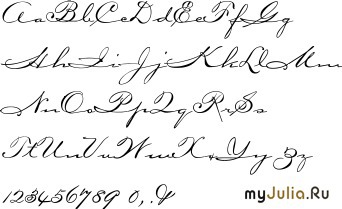 AaBbCcDdEeFfGg
HhIiJjKkLlMm
NnOoPpQqRrSs
TtUuVvWwXxYyZz
1234567890,.&
myJulia.Ru